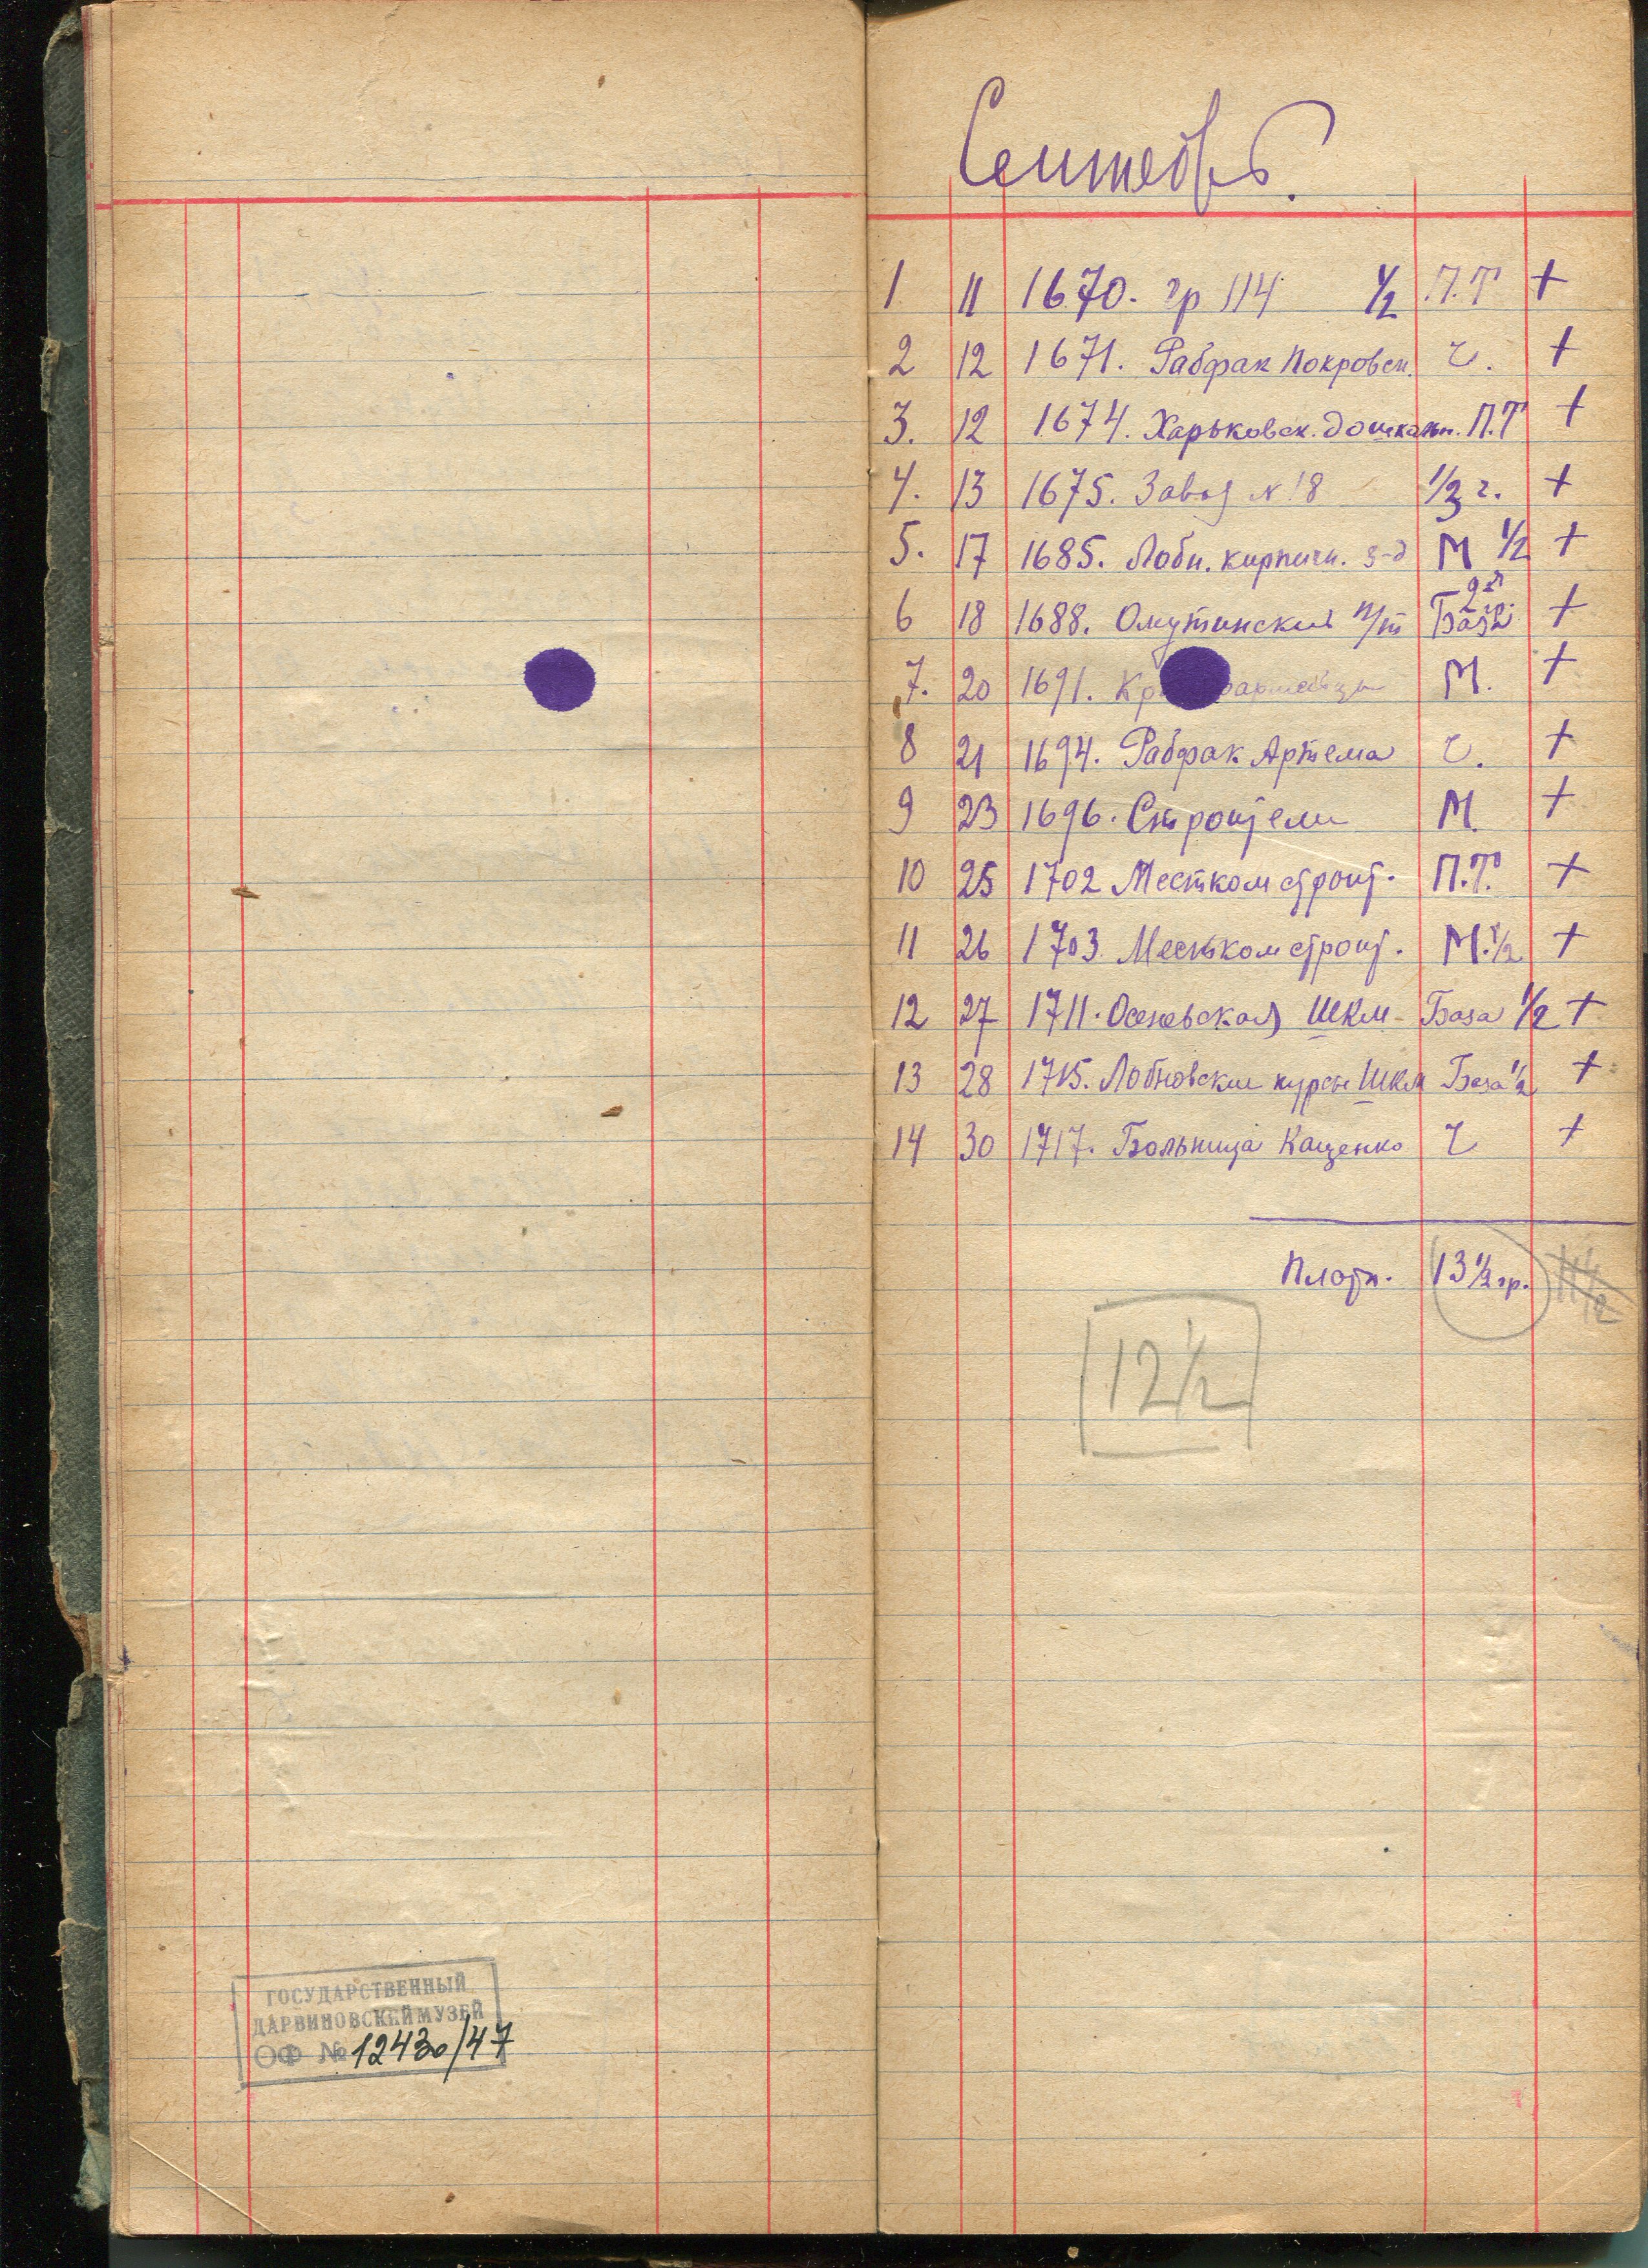 ГОСУДАРСТВЕННЫЙ
ДАРВИНОВСКИЙ МУЗЕЙ
ОФ № 12430/47
Сентябрь.
1 11 1670. гр 114 1/2 П.Т +
2 12 1671. Рабфак Покровск. Ч. +
3. 12 1674. Харьковск. дошкольн. П.Т +
4. 13 1675. Завод № 18 1/3 г. +
5. 17 1685. Лобн. кирпичн. з-д М 1/2 +
6 18 1688. Омутинский п/т База 2 гр. +
7. 20 1691. М. +
8 21 1694. Рабфак Артема Ч. +
9 23 1696. Строители М. +
10 25 1702 Местком строит. П.Т. +
11 26 1703. Местком строит. М. 1/2 +
12 27 1711. ШКМ - База 1/2 +
13 28 1715. Лобновские курсы ШКМ База 1/2 +
14 30 1717. Больница Кащенко Ч +
Платн. 13 1/2 гр.
12 1/2